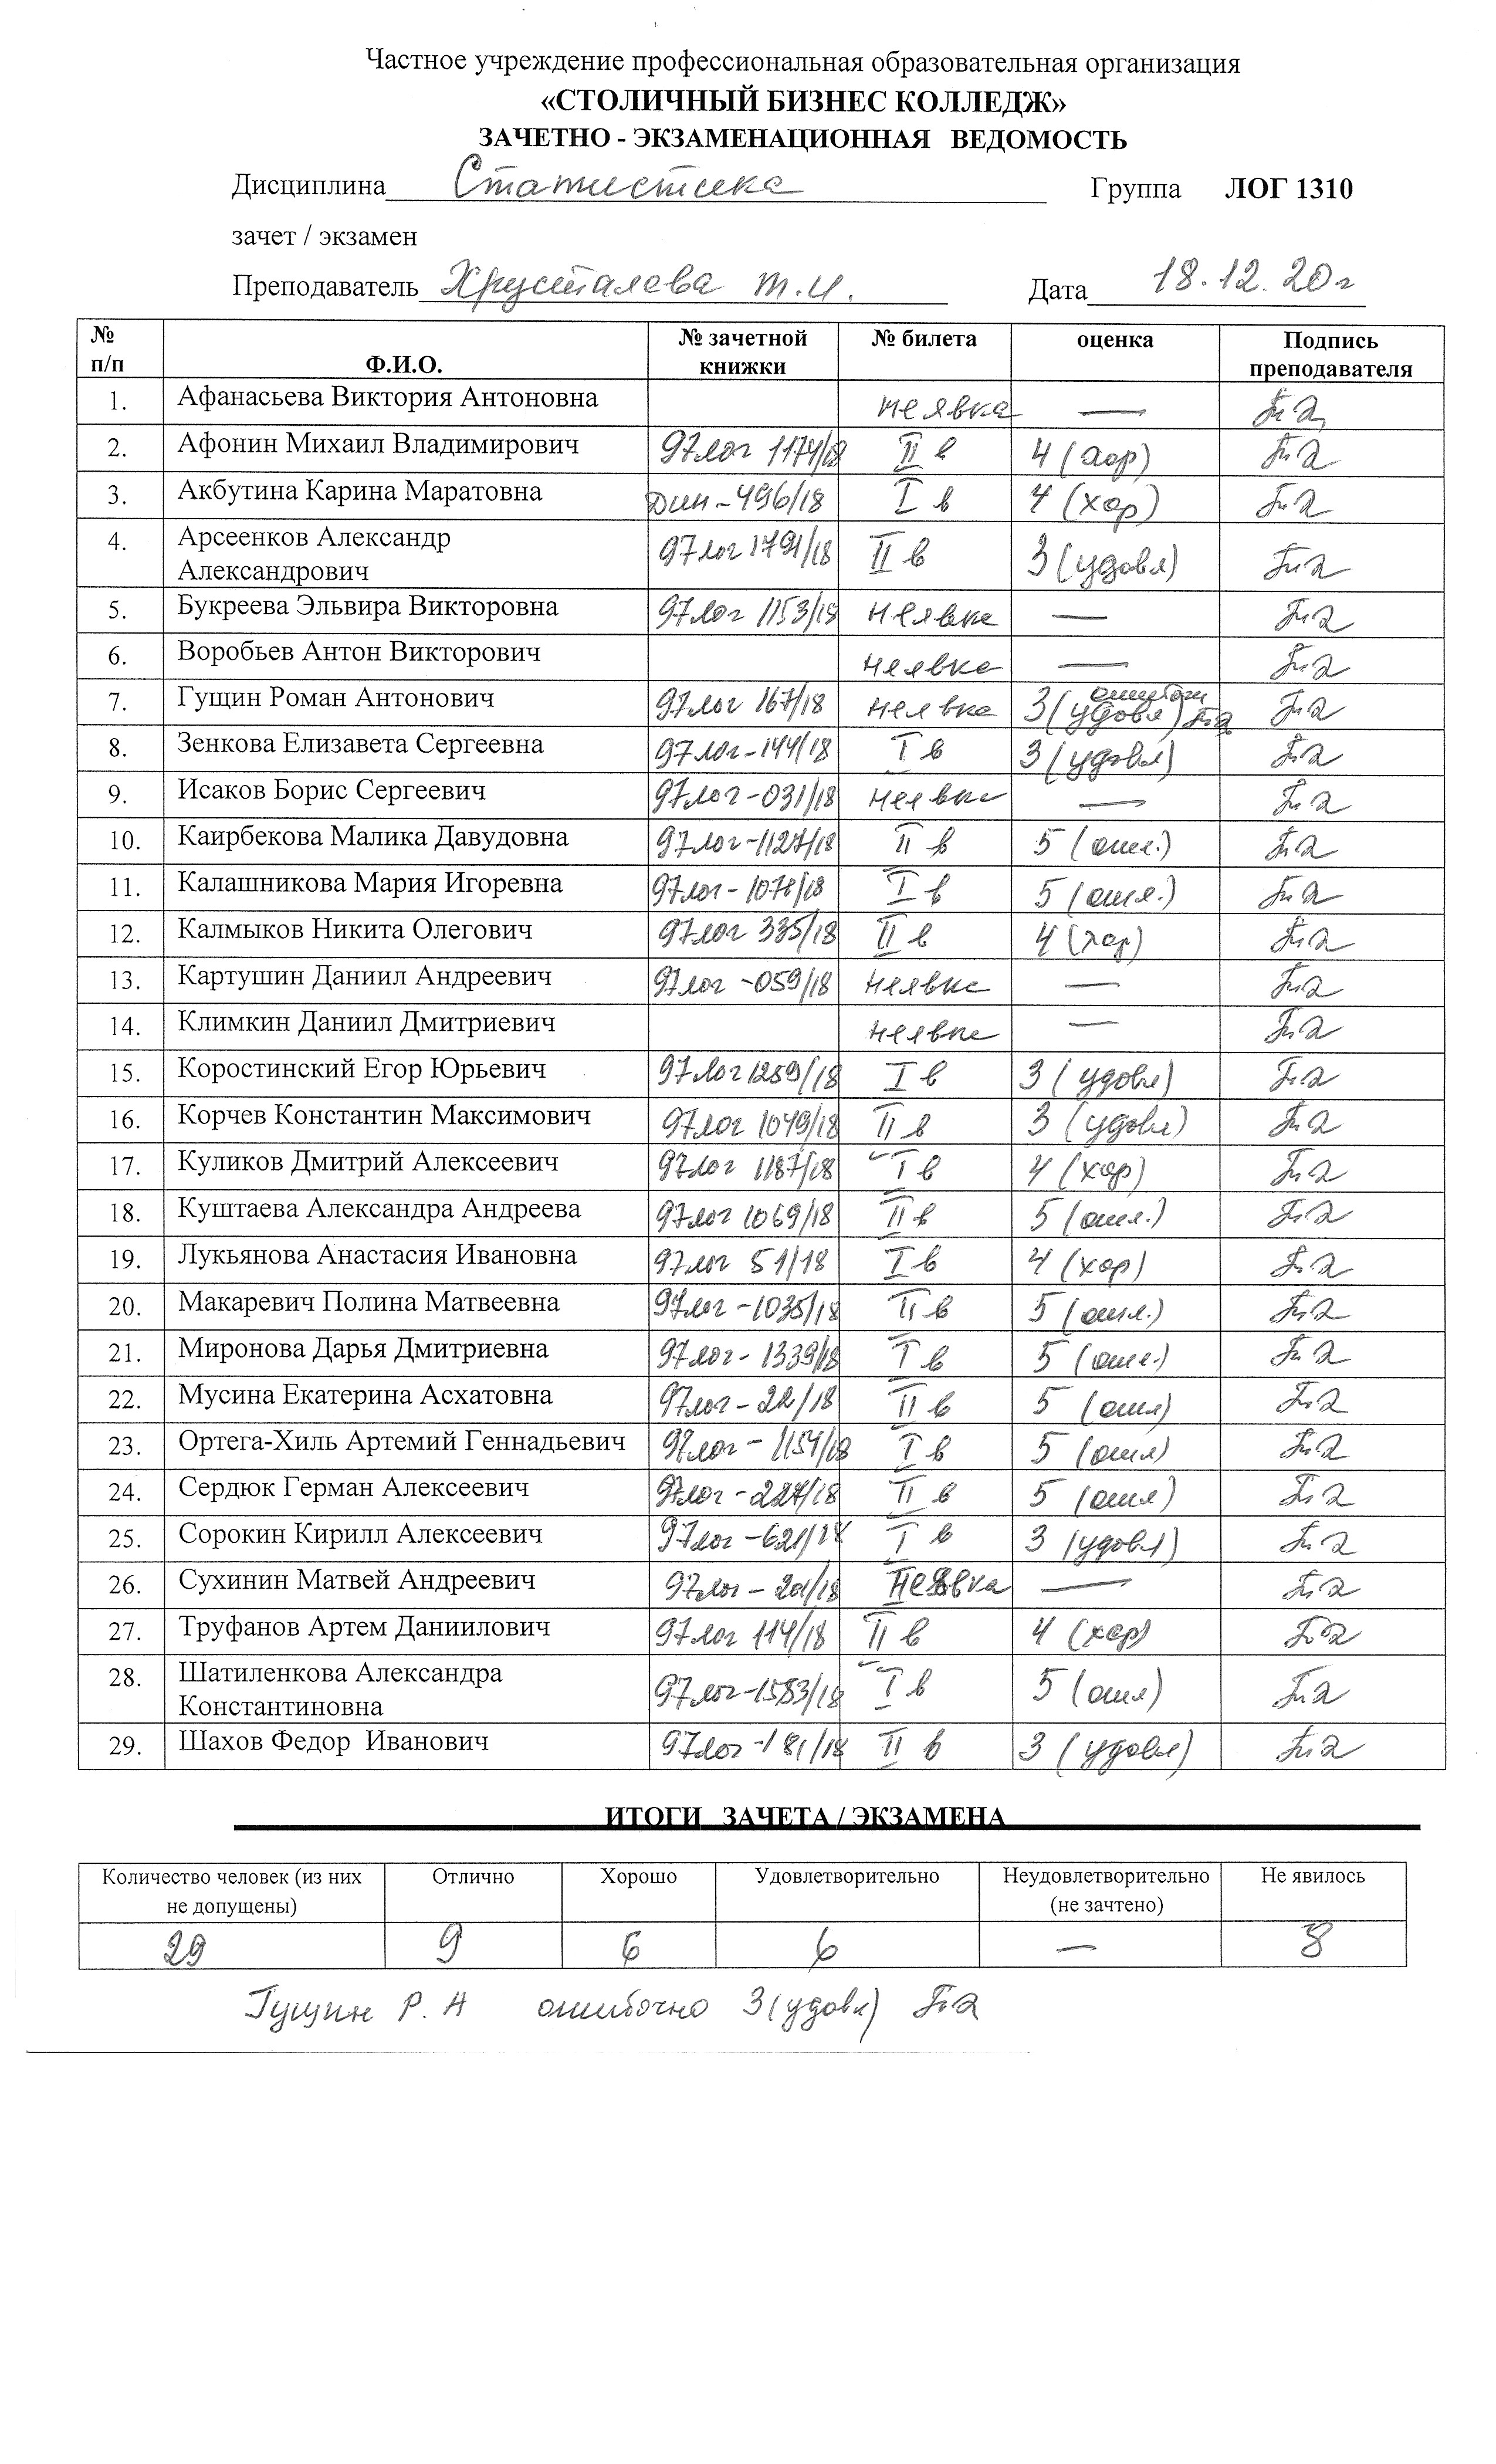 Частное учреждение профессиональная образовательная организация
«СТОЛИЧНЫЙ БИЗНЕС КОЛЛЕДЖ»
ЗАЧЕТНО - ЭКЗАМЕНАЦИОННАЯ ВЕДОМОСТЬ
Дисциплина Статистика Группа ЛОГ 1310
зачет / экзамен
Преподаватель Хрусталева Т.И. Дата 18.12.20г
№ п/п Ф.И.О. № зачетной книжки № билета оценка Подпись преподавателя
1. Афанасьева Виктория Антоновна неявка —
2. Афонин Михаил Владимирович 97лог 1174/18 II в 4 (хор)
3. Акбутина Карина Маратовна Дин-496/18 I в 4 (хор)
4. Арсеенков Александр Александрович 97лог 1791/18 II в 3 (удовл)
5. Букреева Эльвира Викторовна 97лог 1153/18 неявка —
6. Воробьев Антон Викторович неявка —
7. Гущин Роман Антонович 97лог 167/18 неявка 3 (удовл)
8. Зенкова Елизавета Сергеевна 97лог-144/18 I в 3 (удовл)
9. Исаков Борис Сергеевич 97лог-031/18 неявка —
10. Каирбекова Малика Давудовна 97лог-1127/18 II в 5 (отл.)
11. Калашникова Мария Игоревна 97лог-1078/18 I в 5 (отл.)
12. Калмыков Никита Олегович 97лог 335/18 II в 4 (хор)
13. Картушин Даниил Андреевич 97лог -059/18 неявка —
14. Климкин Даниил Дмитриевич неявка —
15. Коростинский Егор Юрьевич 97лог 1259/18 I в 3 (удовл)
16. Корчев Константин Максимович 97лог 1049/18 II в 3 (удовл)
17. Куликов Дмитрий Алексеевич 97лог 1187/18 I в 4 (хор)
18. Куштаева Александра Андреева 97лог 1069/18 II в 5 (отл.)
19. Лукьянова Анастасия Ивановна 97лог 51/18 I в 4 (хор)
20. Макаревич Полина Матвеевна 97лог -1035/18 II в 5 (отл.)
21. Миронова Дарья Дмитриевна 97лог- 1339/18 I в 5 (отл.)
22. Мусина Екатерина Асхатовна 97лог - 22/18 II в 5 (отл)
23. Ортега-Хиль Артемий Геннадьевич 97лог - 1154/18 I в 5 (отл)
24. Сердюк Герман Алексеевич 97лог -227/18 II в 5 (отл)
25. Сорокин Кирилл Алексеевич 97лог -621/18 I в 3 (удовл)
26. Сухинин Матвей Андреевич 97лог - 201/18 неявка —
27. Труфанов Артем Даниилович 97лог 114/18 II в 4 (хор)
28. Шатиленкова Александра Константиновна 97лог-1583/18 I в 5 (отл)
29. Шахов Федор Иванович 97лог -181/18 II в 3 (удовл)
ИТОГИ ЗАЧЕТА / ЭКЗАМЕНА
Количество человек (из них не допущены) Отлично Хорошо Удовлетворительно Неудовлетворительно (не зачтено) Не явилось
29 9 6 6 — 8
Гущин Р. А ошибочно 3 (удовл)